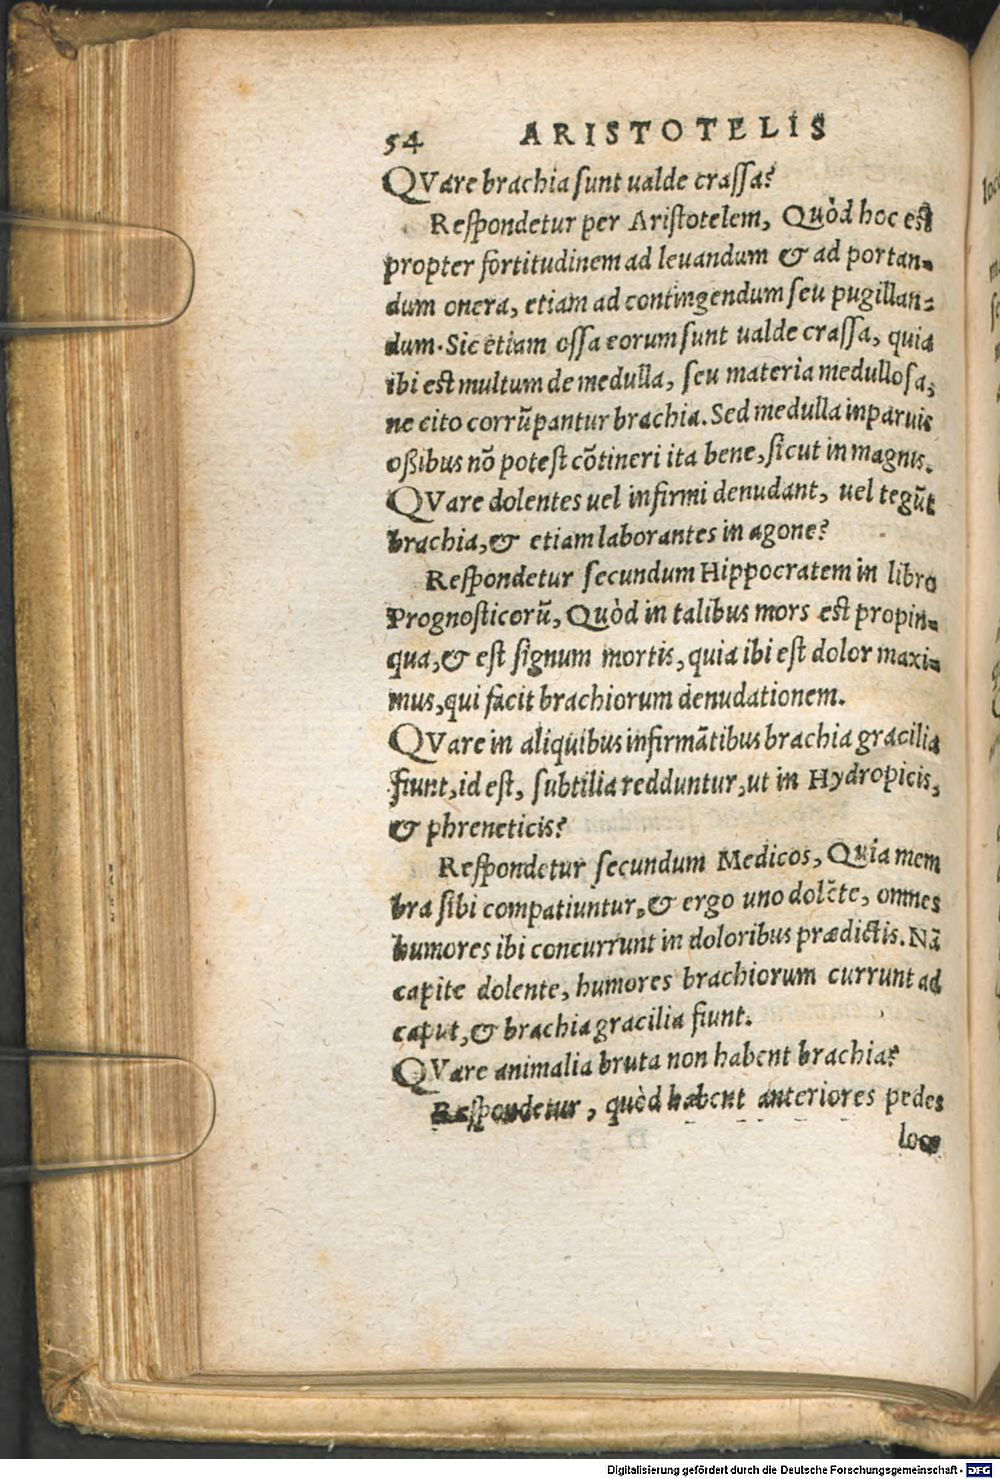 54 ARISTOTELIS
QVare brachia sunt ualde crassa?
Respondetur per Aristotelem, Quòd hoc est
propter fortitudinem ad leuandum & ad portan-
dum onera, etiam ad contingendum seu pugillan-
dum. Sic etiam ossa eorum sunt ualde crassa, quia
ibi est multum de medulla, seu materia medullosa,
ne cito corrūpantur brachia. Sed medulla in paruis
oßibus nō potest cōtineri ita bene, sicut in magnis.
QVare dolentes uel infirmi denudant, uel tegūt
brachia, & etiam laborantes in agone?
Respondetur secundum Hippocratem in libro
Prognosticorū, Quòd in talibus mors est propin-
qua, & est signum mortis, quia ibi est dolor maxi-
mus, qui facit brachiorum denudationem.
QVare in aliquibus infirmātibus brachia gracilia
fiunt, id est, subtilia redduntur, ut in Hydropicis,
& phreneticis?
Respondetur secundum Medicos, Quia mem
bra sibi compatiuntur, & ergo uno dolēte, omnes
humores ibi concurrunt in doloribus prædictis. Nā
capite dolente, humores brachiorum currunt ad
caput, & brachia gracilia fiunt.
QVare animalia bruta non habent brachia?
Respondetur, quòd habent anteriores pedes
loco
Digitalisierung gefördert durch die Deutsche Forschungsgemeinschaft - DFG